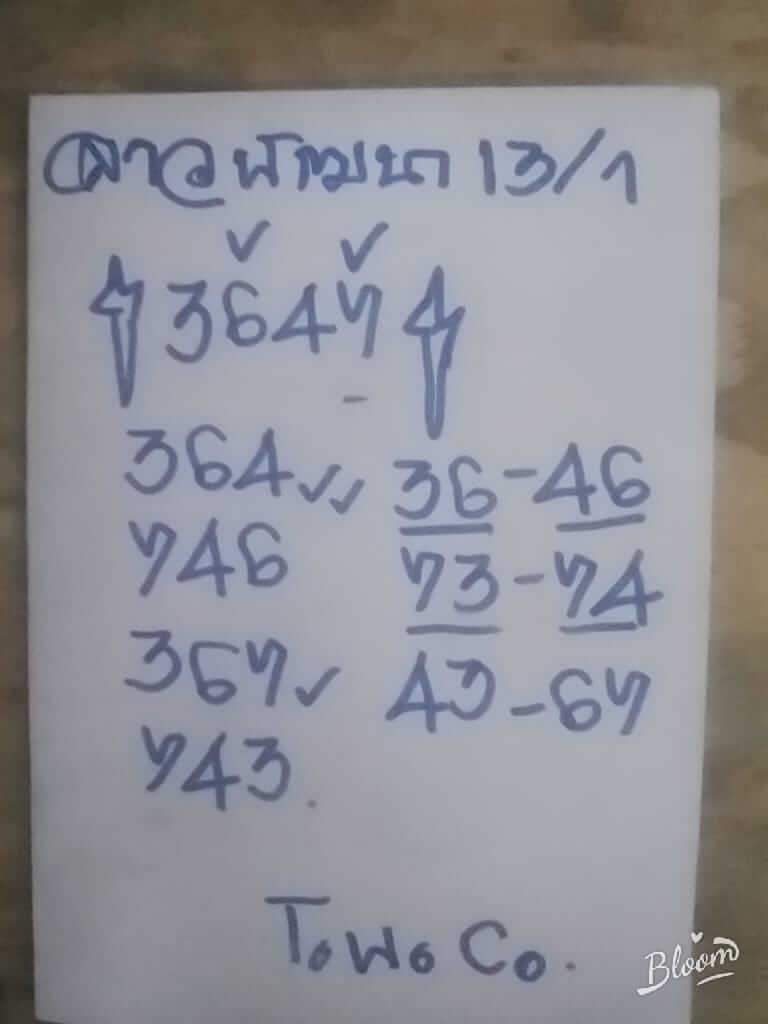 ลาวพัฒนา 13/1
3647
364 36-46
746 73-74
367 43-67
743
T.W. Co.
Bloom